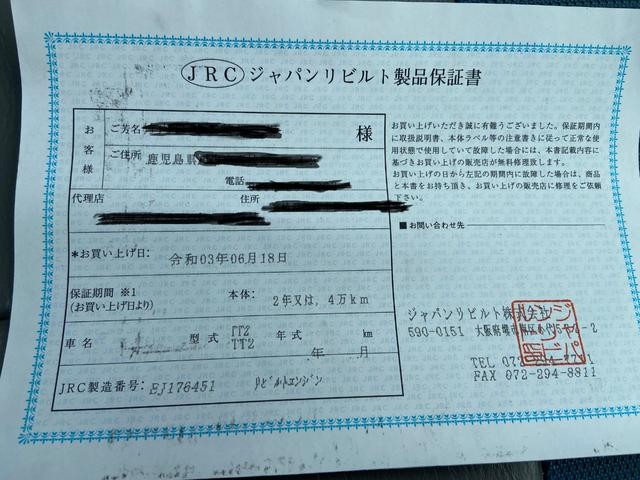 JRC ジャパンリビルト製品保証書
お客様
ご芳名
様
ご住所 鹿児島県
電話
代理店
住所
*お買い上げ日: 令和03年06月18日
保証期間 ※1
(お買い上げ日より)
本体: 2年又は, 4万km
車名
型式 TT2
TT2
年式
年 月
km
JRC製造番号: EJ176451 リビルトエンジン
お買い上げいただき誠に有難うございました。保証期間内
に取扱説明書、本体ラベル等の注意書きに従って正常な使
用状態で使用していて故障した場合には、本書記載内容に
基づきお買い上げの販売店が無料修理致します。
お買い上げの日から左記の期間内に故障した場合は、商品
と本書をお持ち頂き、お買い上げの販売店に修理をご依頼
下さい。
■お問い合わせ先
ジャパンリビルト株式会社
590-0151 大阪府堺市南区小代
TEL 072-294-7
FAX 072-294-8811